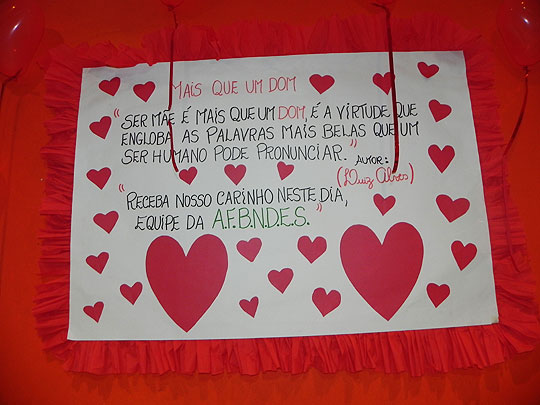 MAIS QUE UM DOM
"SER MÃE É MAIS QUE UM DOM, É A VIRTUDE QUE
ENGLOBA AS PALAVRAS MAIS BELAS QUE UM
SER HUMANO PODE PRONUNCIAR."
AUTOR:
(Luiz Alves)
"RECEBA NOSSO CARINHO NESTE DIA,
EQUIPE DA A.F.B.N.D.E.S."